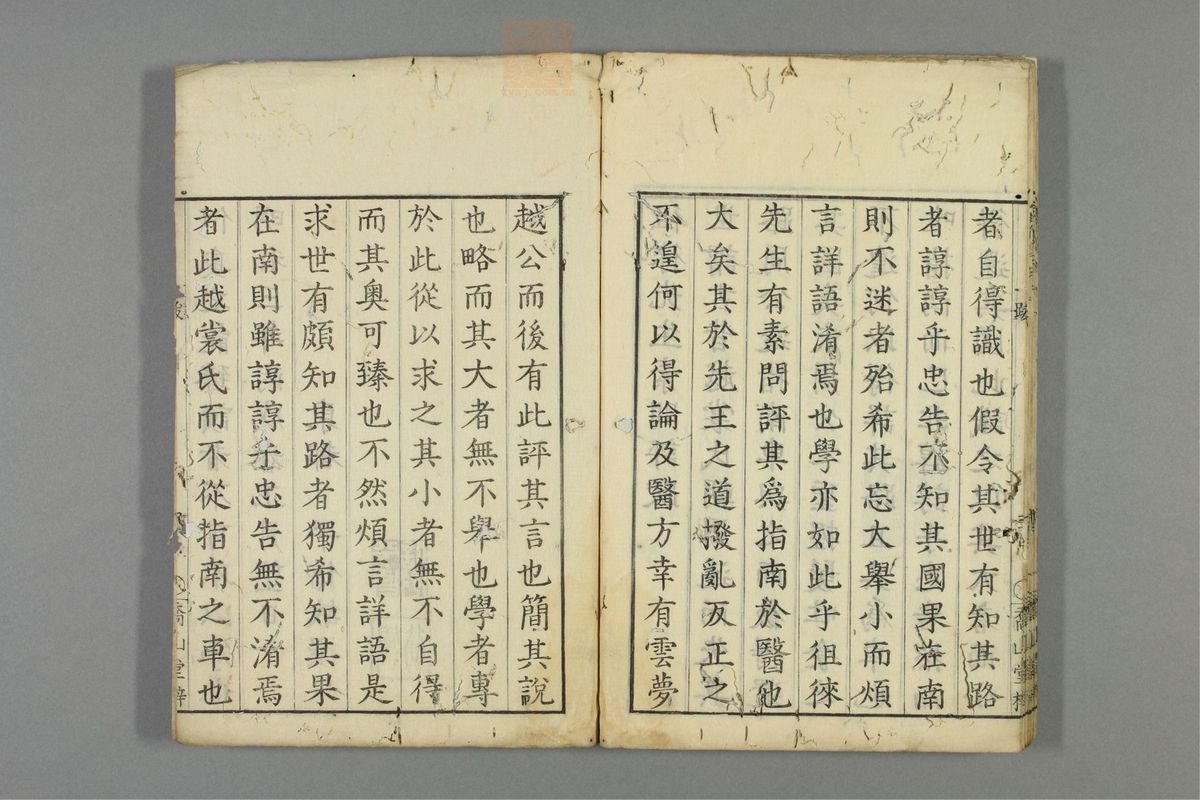 者自得識也假令其世有知其路
者諄諄乎忠告不知其國果在南
則不迷者殆希此忘大舉小而煩
言詳語淆焉也學亦如此乎徂徠
先生有素問評其爲指南於醫也
大矣其於先王之道撥亂反正之
不遑何以得論及醫方幸有雲夢
越公而後有此評其言也簡其說
也略而其大者無不舉也學者專
於此從以求之其小者無不自得
而其奧可臻也不然煩言詳語是
求世有頗知其路者獨希知其果
在南則雖諄諄乎忠告無不淆焉
者此越裳氏而不從指南之車也